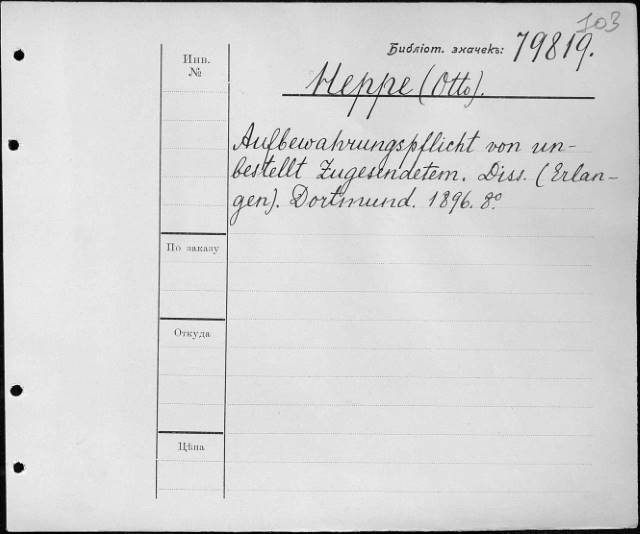 103
Библіот. значекъ: 79819.
Инв.
№
Heppe (Otto).
Aufbewahrungspflicht von un-
bestellt Zugesendetem. Diss. (Erlan-
gen). Dortmund. 1896. 8º.
По заказу
Откуда
Цѣна